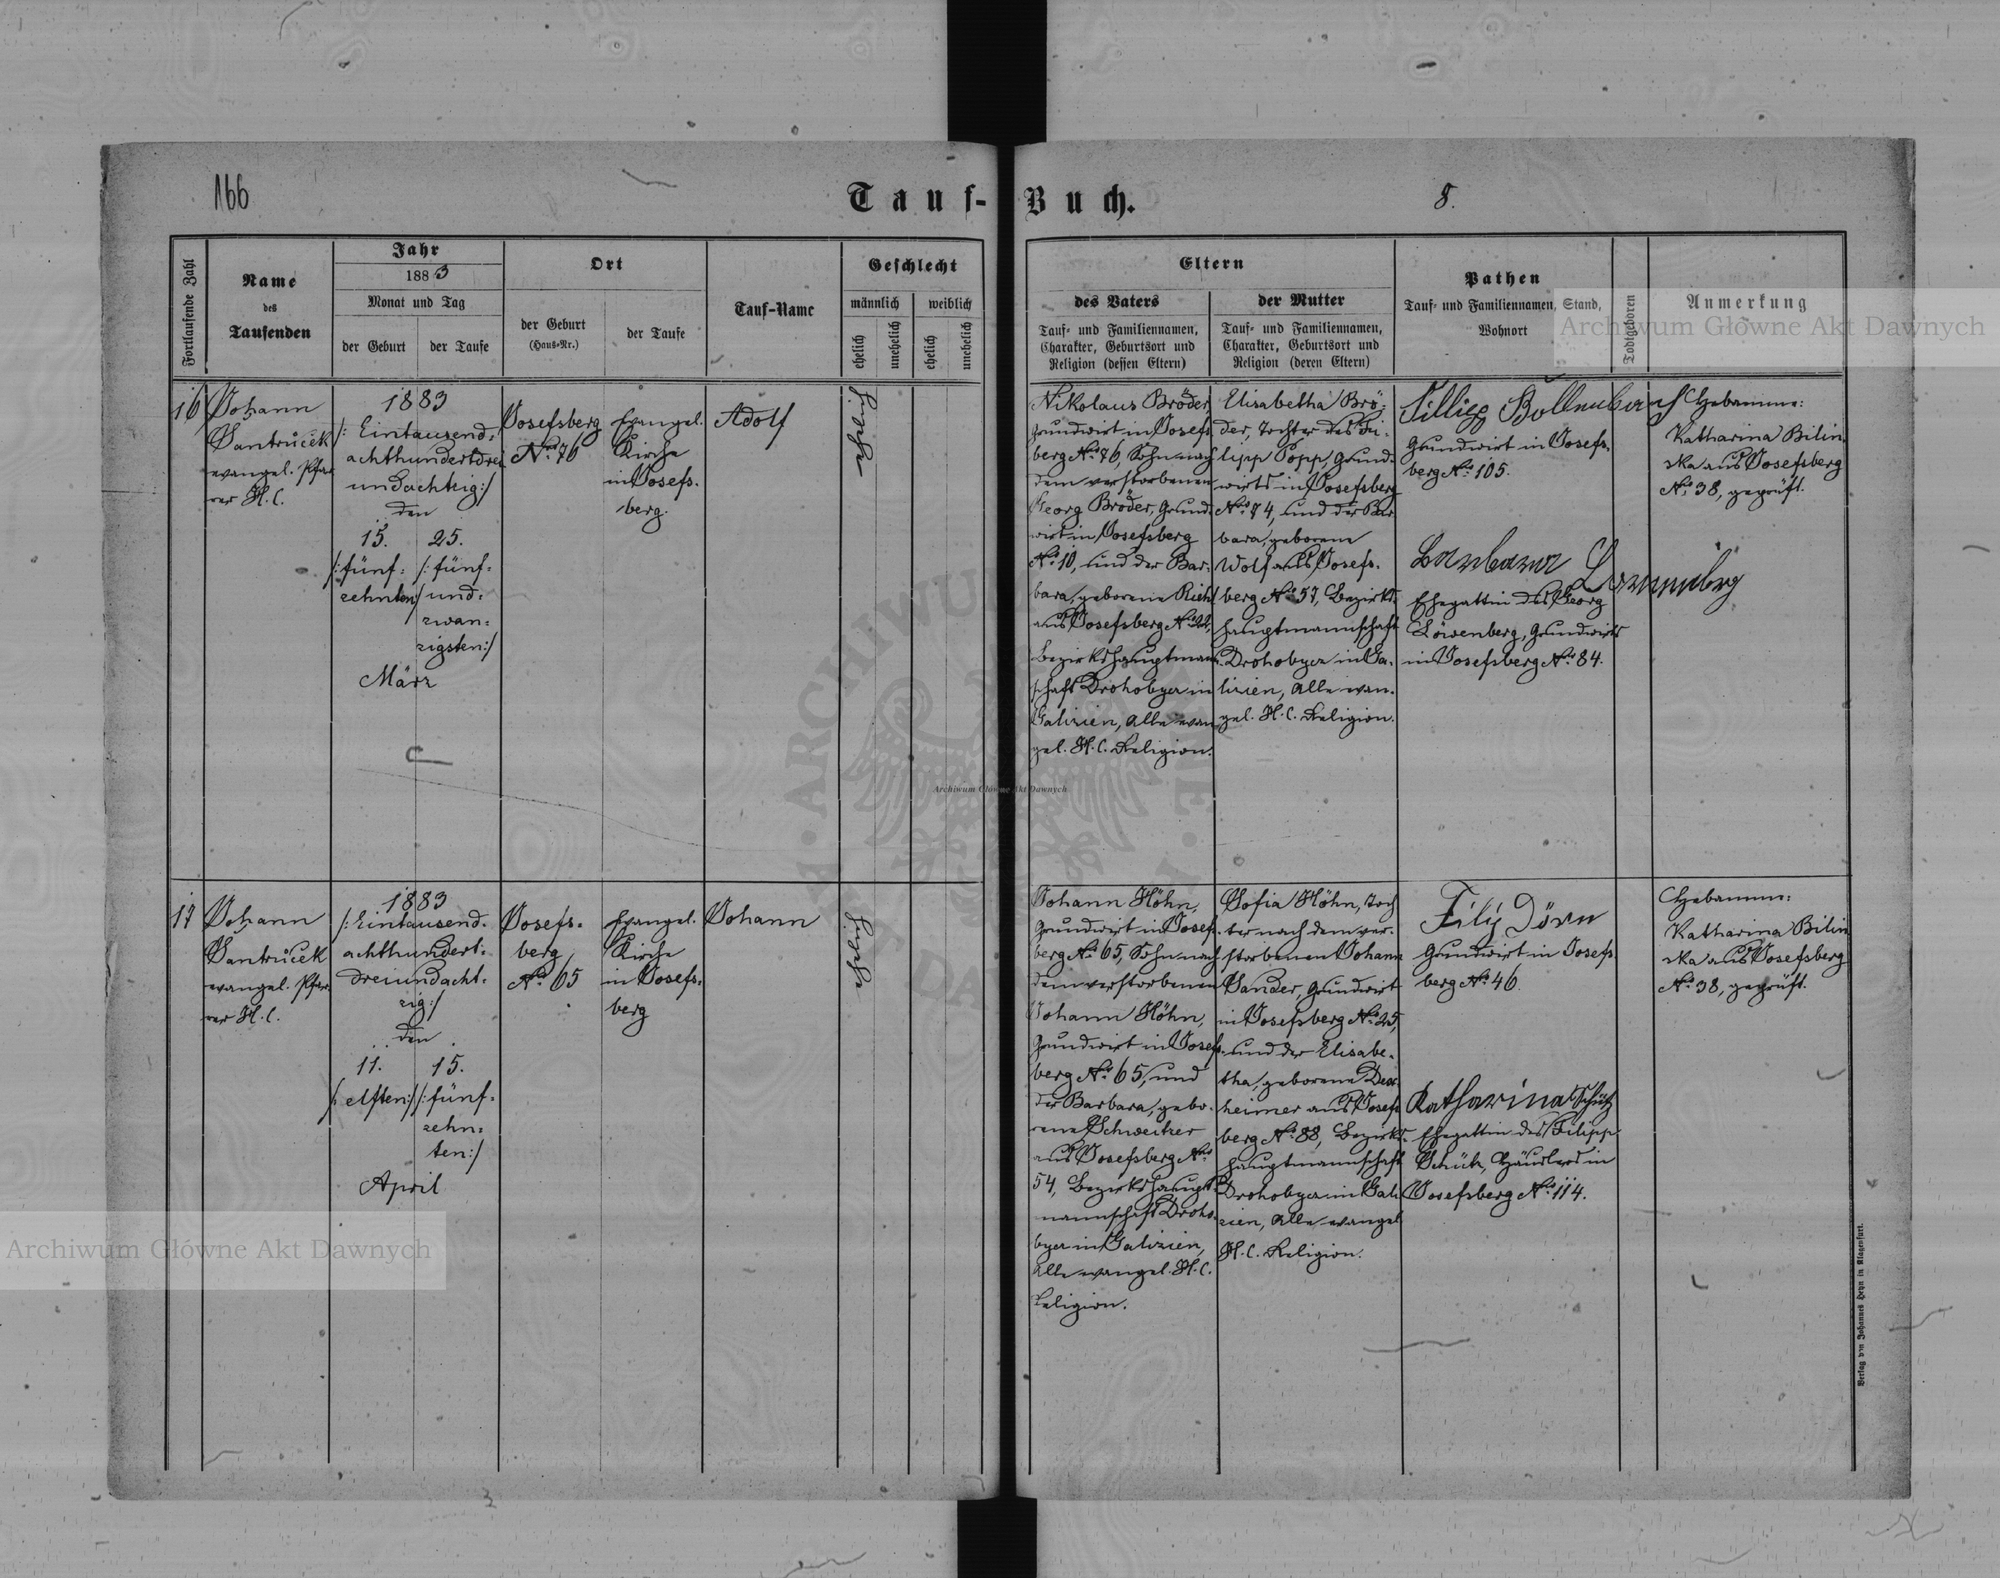 166
Tauf-Buch.
8.
Fortlaufende Zahl
Name
des
Taufenden
Jahr
1883
Monat und Tag
der Geburt
der Taufe
Ort
der Geburt
(Haus-Nr.)
der Taufe
Tauf-Name
Geschlecht
männlich
weiblich
ehelich
unehelich
ehelich
unehelich
Eltern
des Vaters
Tauf- und Familiennamen,
Charakter, Geburtsort und
Religion (dessen Eltern)
der Mutter
Tauf- und Familiennamen,
Charakter, Geburtsort und
Religion (deren Eltern)
Pathen
Tauf- und Familiennamen, Stand,
Wohnort
Todtgeboren
Anmerkung
Archiwum Główne Akt Dawnych
16
Johann
Jantrůček
evangel. Pfar
rer H. C.
1883
/: Eintausend-
achthundertdrei
undachtzig:/
den
15.
/:fünf-
zehnten:/
25.
/:fünf-
und-
zwan-
zigsten:/
März
Josefsberg
No. 76
Evangel.
Kirche
in Josefs-
berg.
Adolf
Nikolaus Bröder,
Grundwirt in Josefs
berg No. 76, Sohn nach
dem verstorbenen
Georg Bröder, Grund-
wirt in Josefsberg
No. 10, und der Bar-
bara, geborene Riehl
aus Josefsberg No. 22,
Bezirkshauptmann-
schaft Drohobycz in
Galizien, Alle evan
gel. H. C. Religion.
Elisabetha Brö-
der, Tochter des Fi-
lipp Popp, Grund-
wirts in Josefsberg
No. 74, und der Bar
bara, geborene
Wolf aus Josefs-
berg No. 57, Bezirks-
hauptmannschaft
Drohobycz in Ga-
lizien, Alle evan-
gel. H. C. Religion.
Fillipp Bollenbach
Grundwirt in Josefs-
berg No. 105.
Barbara
Ehegattin des Georg
Löwenberg, Grundwirts
in Josefsberg No. 84.
Hebamme:
Katharina Bilin
ska aus Josefsberg
No. 38, geprüft.
17
Johann
Jantrůček
evangel. Pfar
rer H. C.
1883
/: Eintausend-
achthundert-
dreiundacht-
zig:/
den
11.
/:elften:/
15.
/:fünf-
zehn-
ten:/
April
Josefs-
berg
No. 65
Evangel.
Kirche
in Josefs-
berg
Johann
Johann Höhn,
Grundwirt in Josefs-
berg No. 65, Sohn nach
dem verstorbenen
Johann Höhn,
Grundwirt in Josefs-
berg No. 65, und
der Barbara, gebo-
rene Schweitzer
aus Josefsberg No.
54, Bezirkshaupt-
mannschaft Droho-
bycz in Galizien,
Alle evangel. H. C.
Religion.
Sofia Höhn, Toch
ter nach dem ver-
storbenen Johann
Sander, Grundwirt
in Josefsberg No. 25,
und der Elisabe-
tha, geborene Dex-
heimer aus Josefs
berg No. 88, Bezirks-
hauptmannschaft
Drohobycz in Gali
zien, Alle evangel
H. C. Religion.
Filip Dörn
Grundwirt in Josefs
berg No. 46.
Katharina Schütz
Ehegattin des Filipp
Schütz, Häuslers in
Josefsberg No. 114.
Hebamme:
Katharina Bilin
ska aus Josefsberg
No. 38, geprüft.
Archiwum Główne Akt Dawnych
Archiwum Główne Akt Dawnych
Verlag von Johannes Heyn in Klagenfurt.